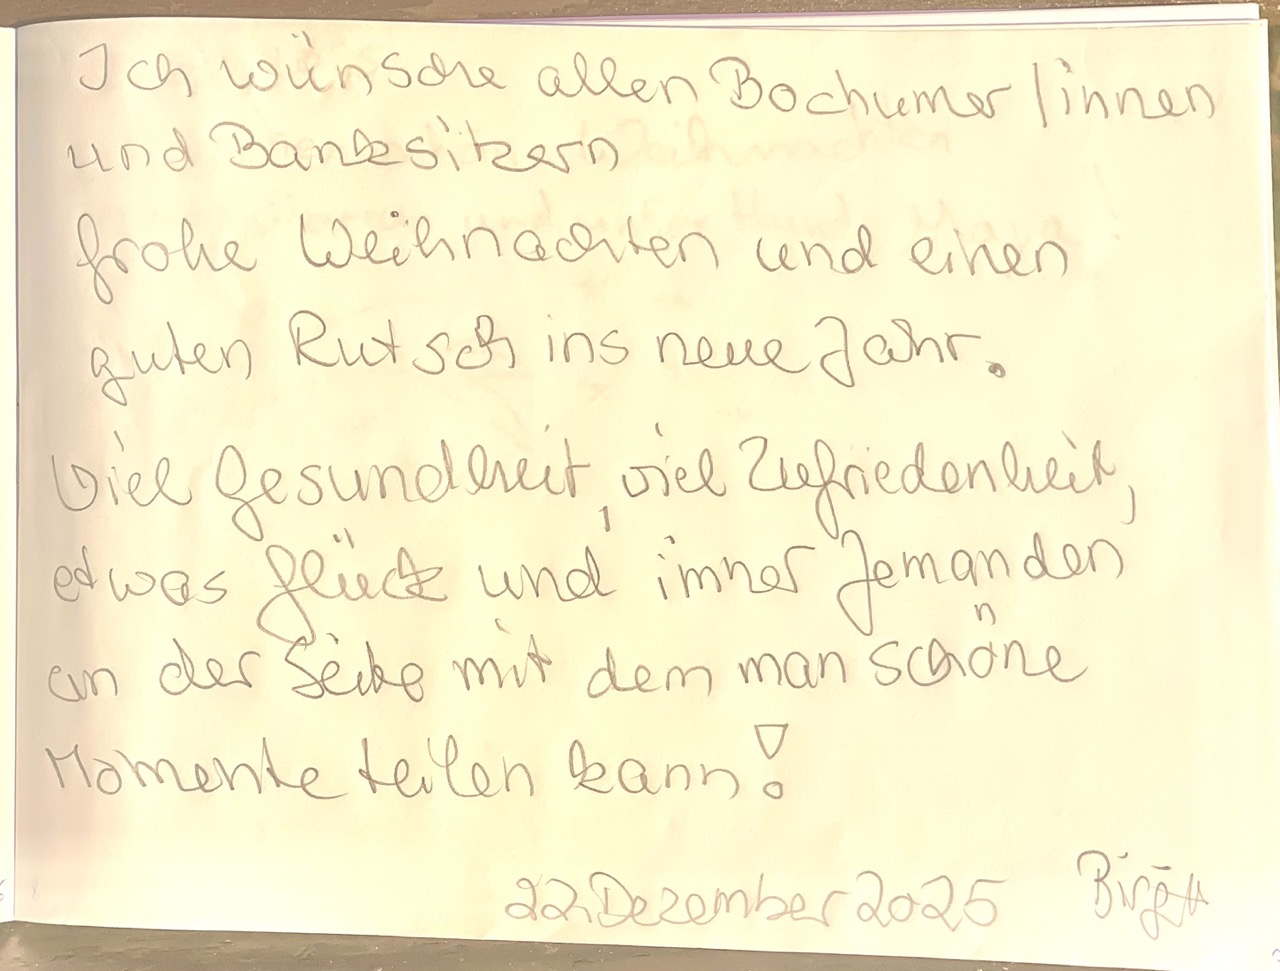 Ich wünsche allen Bochumer/innen
und Banksitzern
frohe Weihnachten und einen
guten Rutsch ins neue Jahr.
Viel Gesundheit, viel Zufriedenheit,
etwas Glück und immer Jemanden
an der Seite mit dem man schöne
Momente teilen kann!
22. Dezember 2025 Birgitt